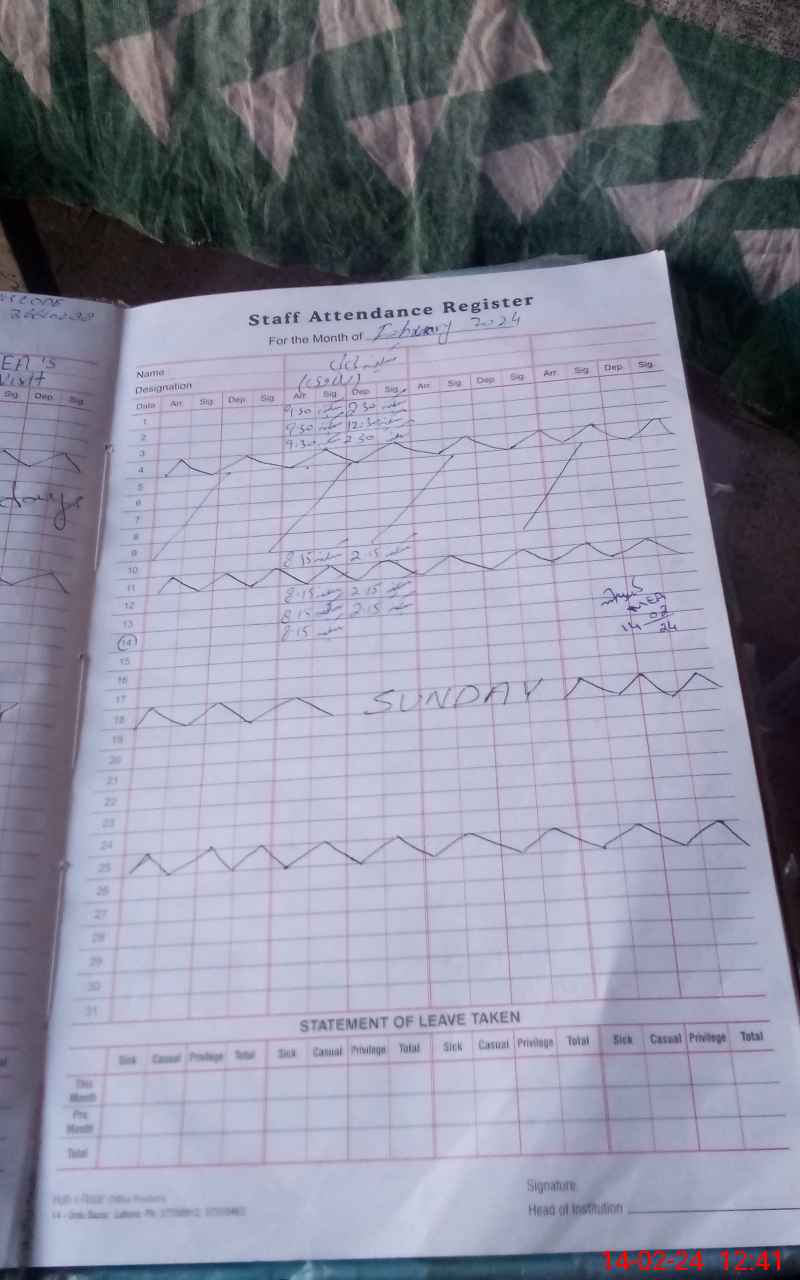 EA'S
Visit
Sig. Dep. Sig.
days
Staff Attendance Register
For the Month of February 2024
Name
Designation
Date Arr. Sig. Dep. Sig. Arr. Sig. Dep. Sig. Arr. Sig. Dep. Sig. Arr. Sig. Dep. Sig.
1 9.30 2.30
2 9.30 12.30
3 9.30 2.30
4
5
6
7
8
9
10 8.15 2.15
11
12 8.15 2.15
13 8.15 2.15
14 8.15
MEA
14 02 24
15
16
17
18 SUNDAY
19
20
21
22
23
24
25
26
27
28
29
30
31
STATEMENT OF LEAVE TAKEN
Sick Casual Privilege Total Sick Casual Privilege Total Sick Casual Privilege Total Sick Casual Privilege Total
This Month
Pre. Month
Total
Signature
Head of Institution
14-02-24 12:41